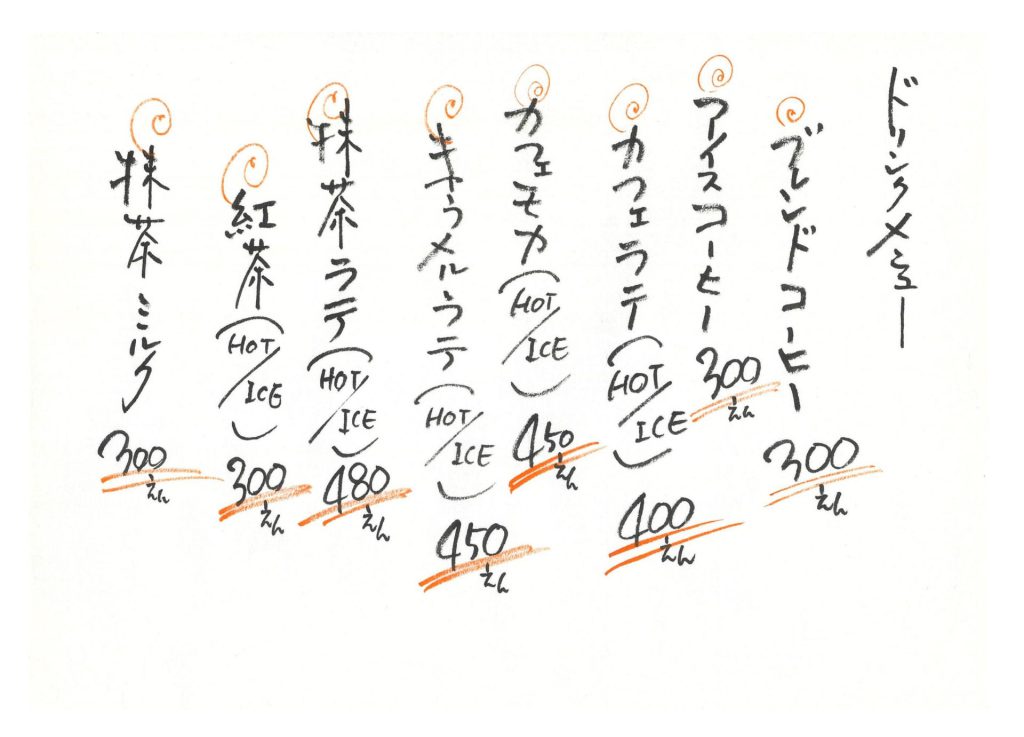 ドリンクメニュー
ブレンドコーヒー 300えん
アイスコーヒー 300えん
カフェラテ(HOT/ICE) 400えん
カフェモカ(HOT/ICE) 450えん
キャラメルラテ(HOT/ICE) 450えん
抹茶ラテ(HOT/ICE) 480えん
紅茶(HOT/ICE) 300えん
抹茶ミルク 300えん